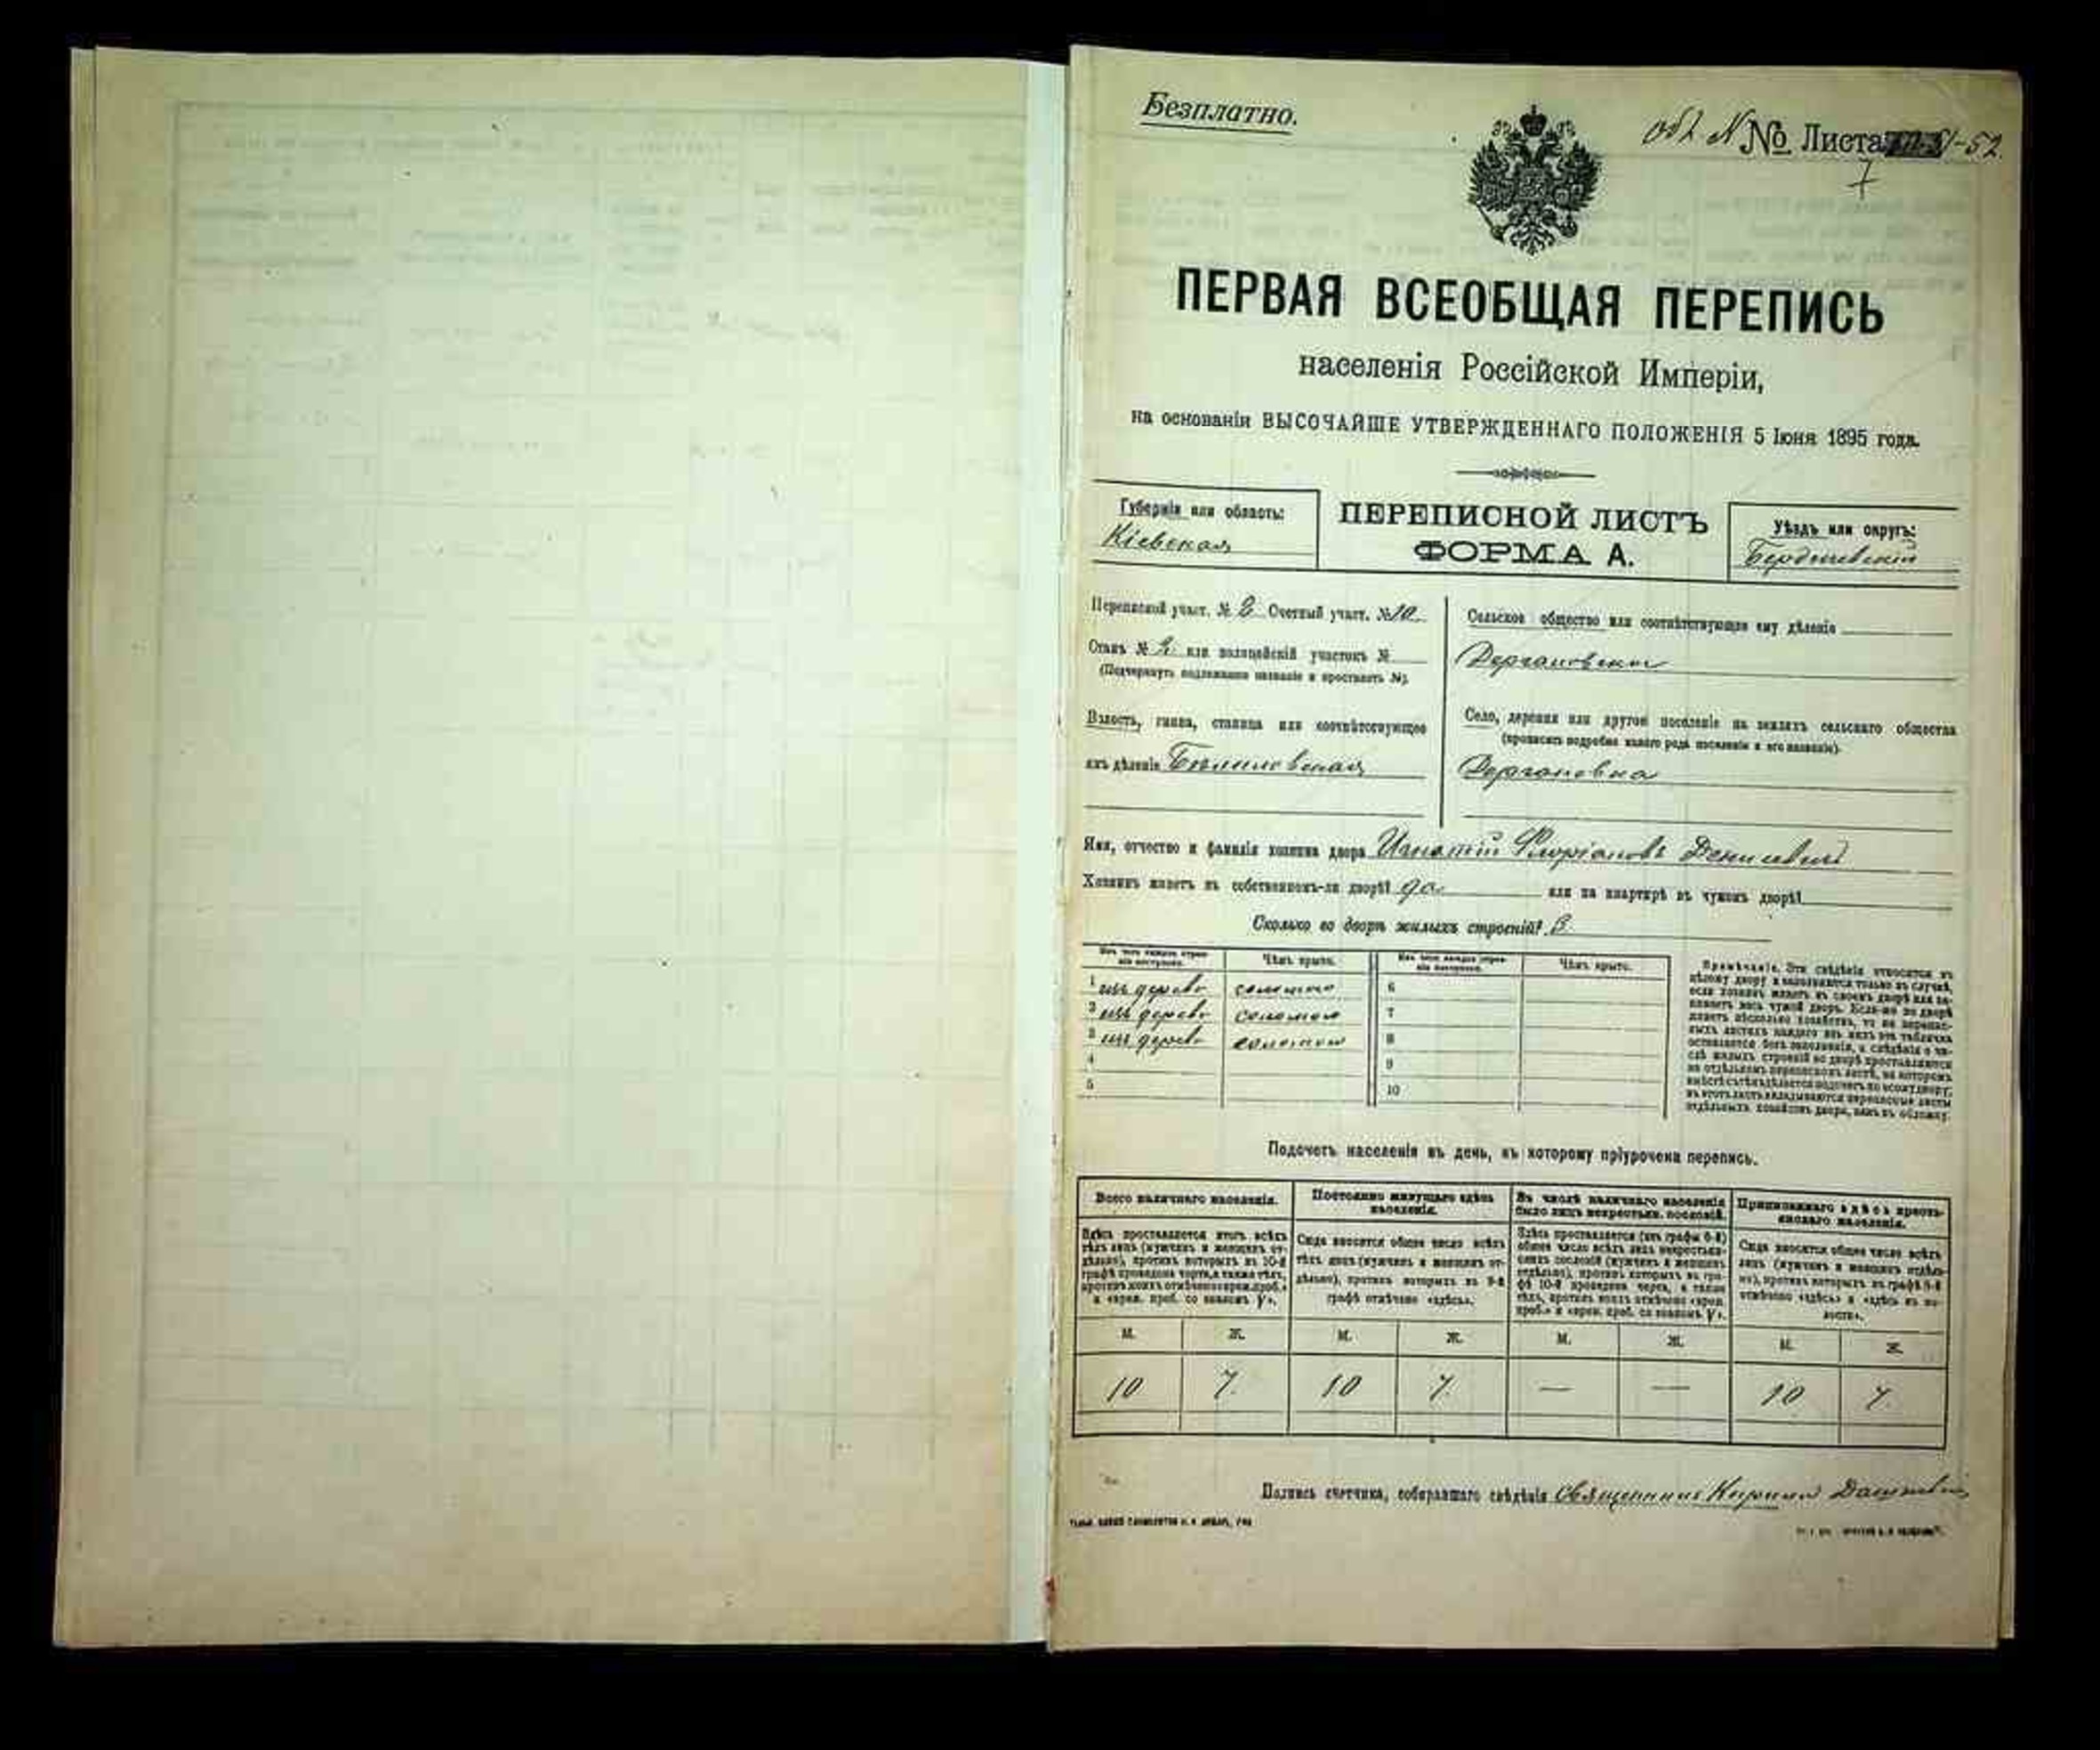 Безплатно.
№ Листа 51-52
7
ПЕРВАЯ ВСЕОБЩАЯ ПЕРЕПИСЬ
населенія Россійской Имперіи,
на основаніи ВЫСОЧАЙШЕ УТВЕРЖДЕННАГО ПОЛОЖЕНІЯ 5 Іюня 1895 года.
Губернія или область:
Кіевская
ПЕРЕПИСНОЙ ЛИСТЪ
ФОРМА А.
Уѣздъ или округъ:
Бердичевскій
Переписной участ. № 2 Счетный участ. № 10
Станъ № 2 или полицейскій участокъ №
(Подчеркнуть подлежащее названіе и проставить №).
Волость, гмина, станица или соотвѣтствующее
имъ дѣленіе Бѣлиловская
Сельское общество или соотвѣтствующее ему дѣленіе
Село, деревня или другое поселеніе на земляхъ сельскаго общества
(прописать подробно какого рода поселеніе и его названіе).
Имя, отчество и фамилія хозяина двора Игнатій Флоріановъ Денисевичъ
Хозяинъ живетъ въ собственномъ-ли дворѣ? да или на квартирѣ въ чужомъ дворѣ?
Сколько во дворѣ жилыхъ строеній? 3
Изъ чего каждое строеніе построено.
Чѣмъ крыто.
Изъ чего каждое строеніе построено.
Чѣмъ крыто.
1 изъ дерева соломою 6
2 изъ дерева соломою 7
3 изъ дерева соломою 8
4 9
5 10
Примѣчаніе. Эти свѣдѣнія относятся къ
цѣлому двору и заполняются только въ случаѣ,
если хозяинъ живетъ въ своемъ дворѣ или занимаетъ
весь чужой дворъ. Если-же во дворѣ
живетъ нѣсколько хозяйствъ, то на переписныхъ
листахъ каждаго изъ нихъ эта табличка
оставляется безъ заполненія, а свѣдѣнія о числѣ
жилыхъ строеній во дворѣ проставляются
на отдѣльномъ переписномъ листѣ, на которомъ
вмѣстѣ съ тѣмъ дѣлается подсчетъ по всему двору;
въ этотъ листъ вкладываются переписные листы
отдѣльныхъ хозяйствъ двора, какъ въ обложку.
Подсчетъ населенія въ день, къ которому пріурочена перепись.
Всего наличнаго населенія.
Постоянно живущаго здѣсь населенія.
Въ числѣ наличнаго населенія было лицъ некрестьян. сословій.
Приписаннаго здѣсь крестьянскаго населенія.
Здѣсь проставляется итогъ всѣхъ тѣхъ лицъ (мужчинъ и женщинъ отдѣльно), противъ которыхъ въ 10-й графѣ проведена черта, а также тѣхъ, противъ коихъ отмѣчено «врем. проб.» и «врем. проб. со знакомъ V».
Сюда вносится общее число всѣхъ тѣхъ лицъ (мужчинъ и женщинъ отдѣльно), противъ которыхъ въ 9-й графѣ отмѣчено «здѣсь».
Здѣсь проставляется (изъ графы 6-й) общее число всѣхъ лицъ некрестьянскихъ сословій (мужчинъ и женщинъ отдѣльно), противъ которыхъ въ графѣ 10-й проведена черта, а также тѣхъ, противъ коихъ отмѣчено «врем. проб.» и «врем. проб. со знакомъ V».
Сюда вносится общее число всѣхъ лицъ (мужчинъ и женщинъ отдѣльно), противъ которыхъ въ графѣ 8-й отмѣчено «здѣсь» и «здѣсь въ волости».
М. Ж. М. Ж. М. Ж. М. Ж.
10 7 10 7 — — 10 7
Подпись счетчика, собиравшаго свѣдѣнія Священникъ Кириллъ